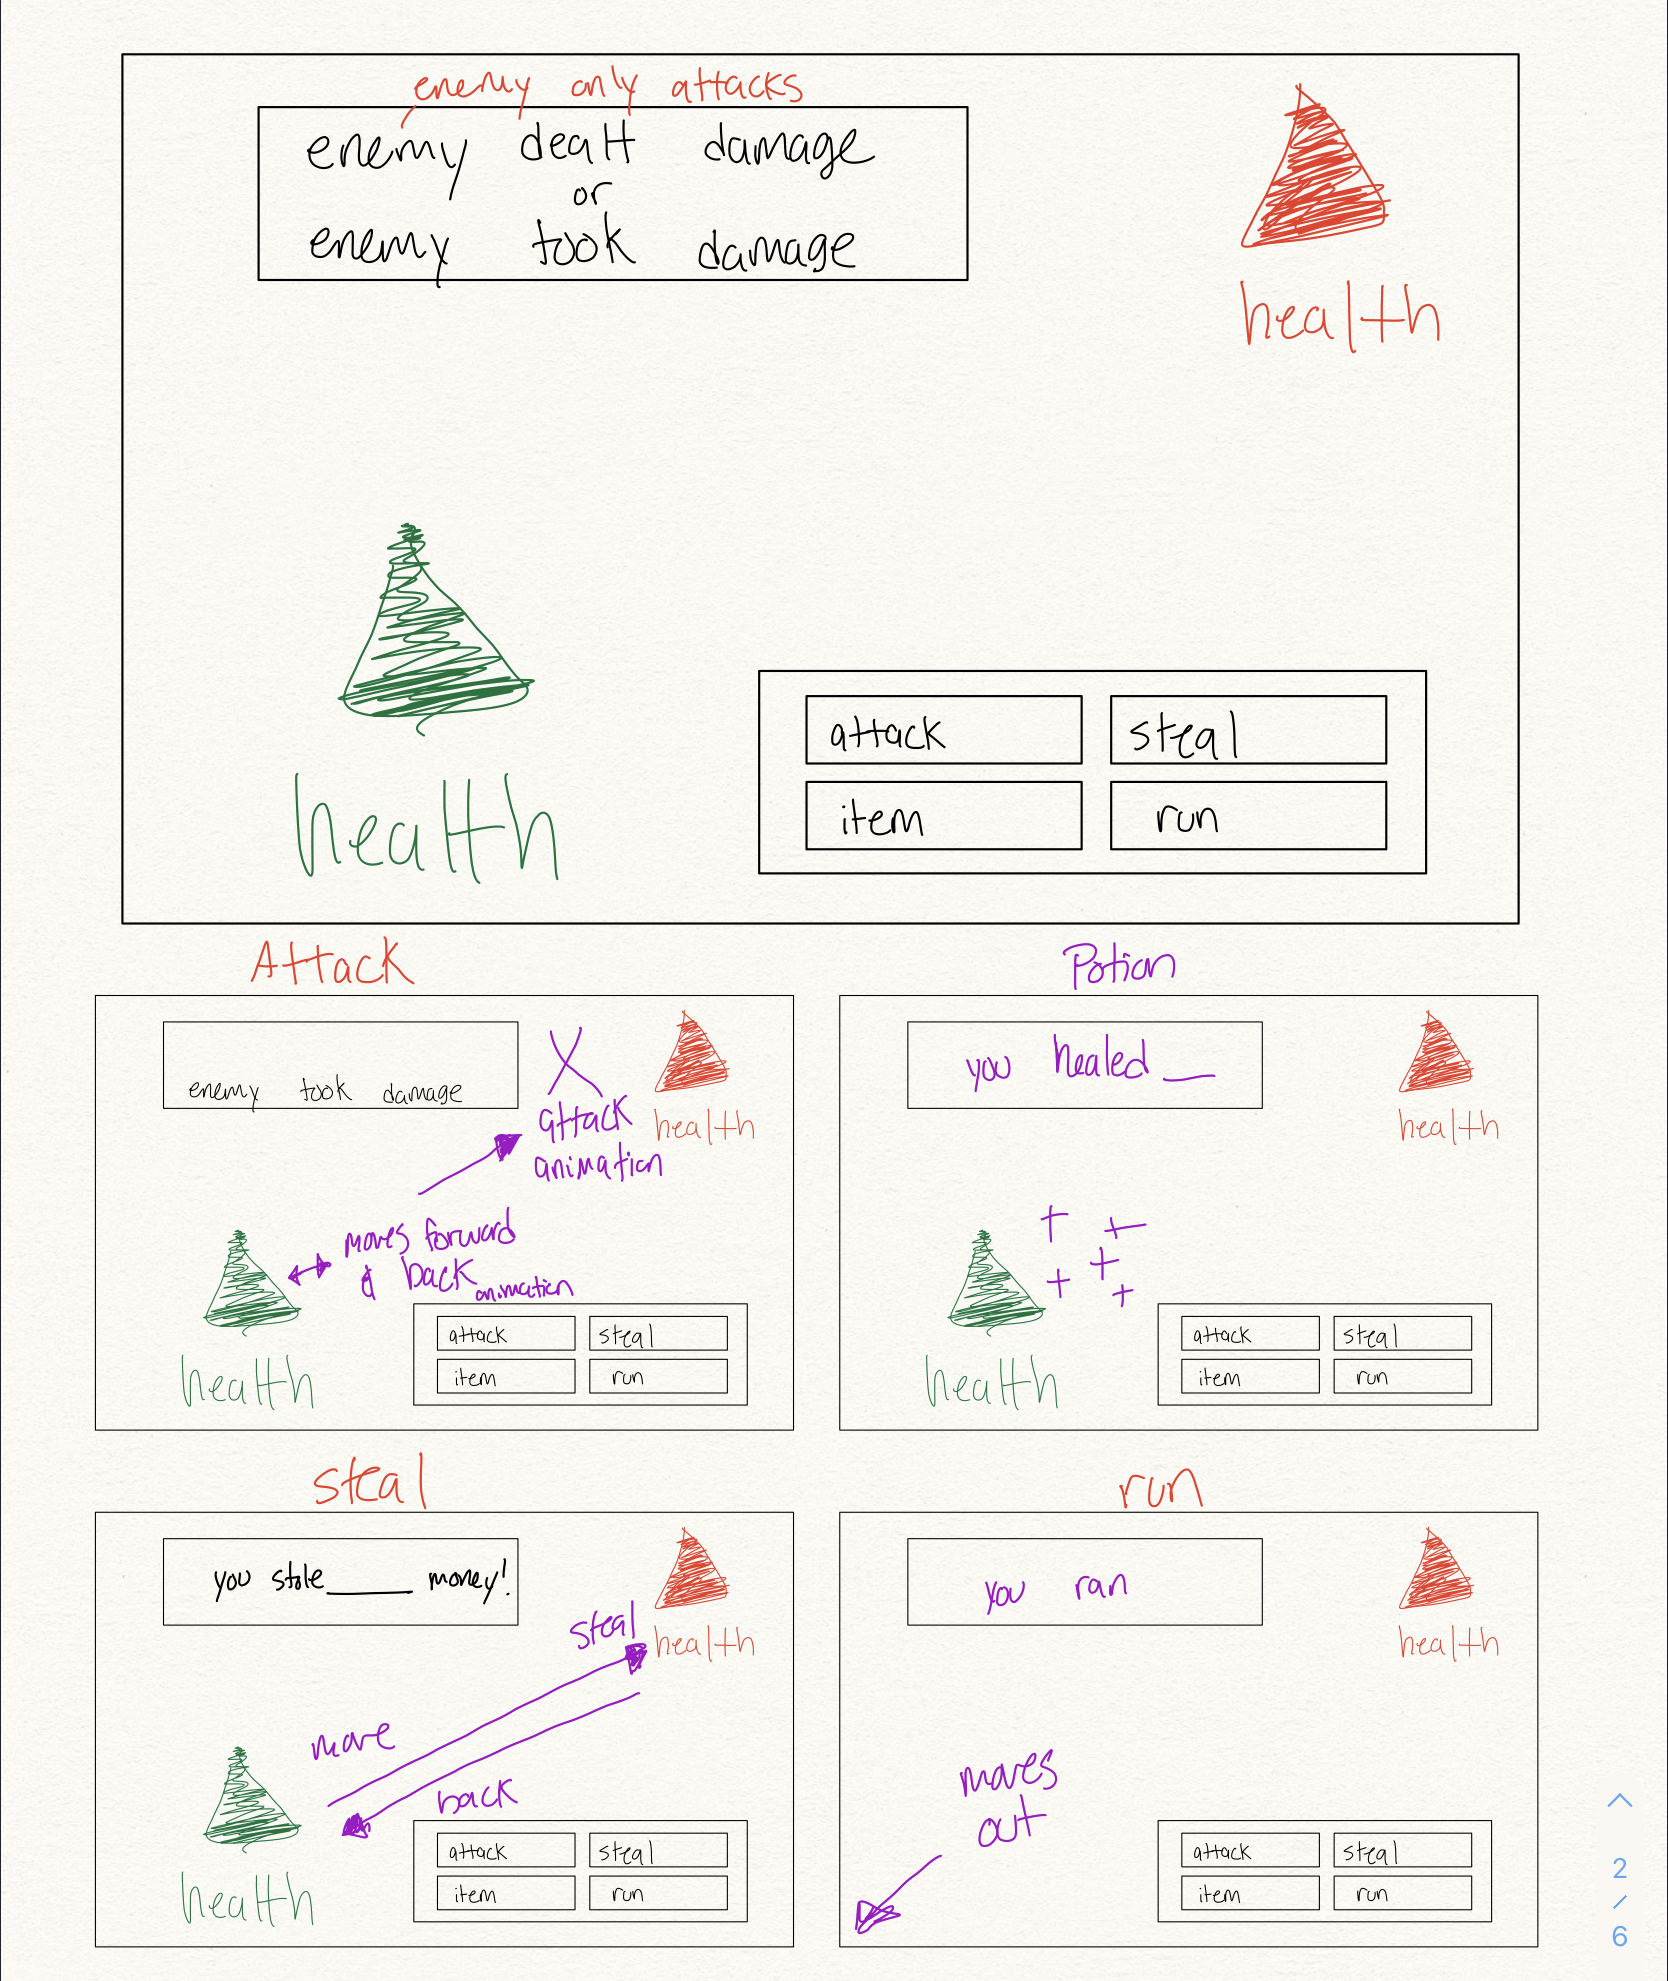 enemy only attacks
enemy dealt damage
or
enemy took damage
health
health
attack steal
item run
Attack
enemy took damage
attack
animation
health
moves forward
& back animation
health
attack steal
item run
Potion
you healed __
health
health
attack steal
item run
steal
you stole ______ money!
steal
health
move
back
health
attack steal
item run
run
you ran
health
moves
out
attack steal
item run
2
/
6